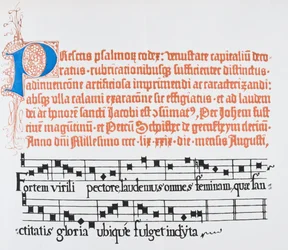 Presens psalmoꝝ codex: venustate capitaliū deco-
ratus. rubricationibusqȝ sufficienter distinctus.
adinuencōne artificiosa imprimendi ac caracterizandi:
absqȝ ulla calami exaracōne sic effigiatus. et ad laudem
dei ac honorē sancti Jacobi est ↄsumatꝰ. Per Johem fust
civē magūtinū. et Petrū Schoifher de gernsheym clericū.
Anno dn̄i Millesimo cccc lix. xxix. die mensis Augusti.
Fortem virili pectore, laudemus omnes feminam, quæ san-
ctitatis gloria ubique fulget inclyta